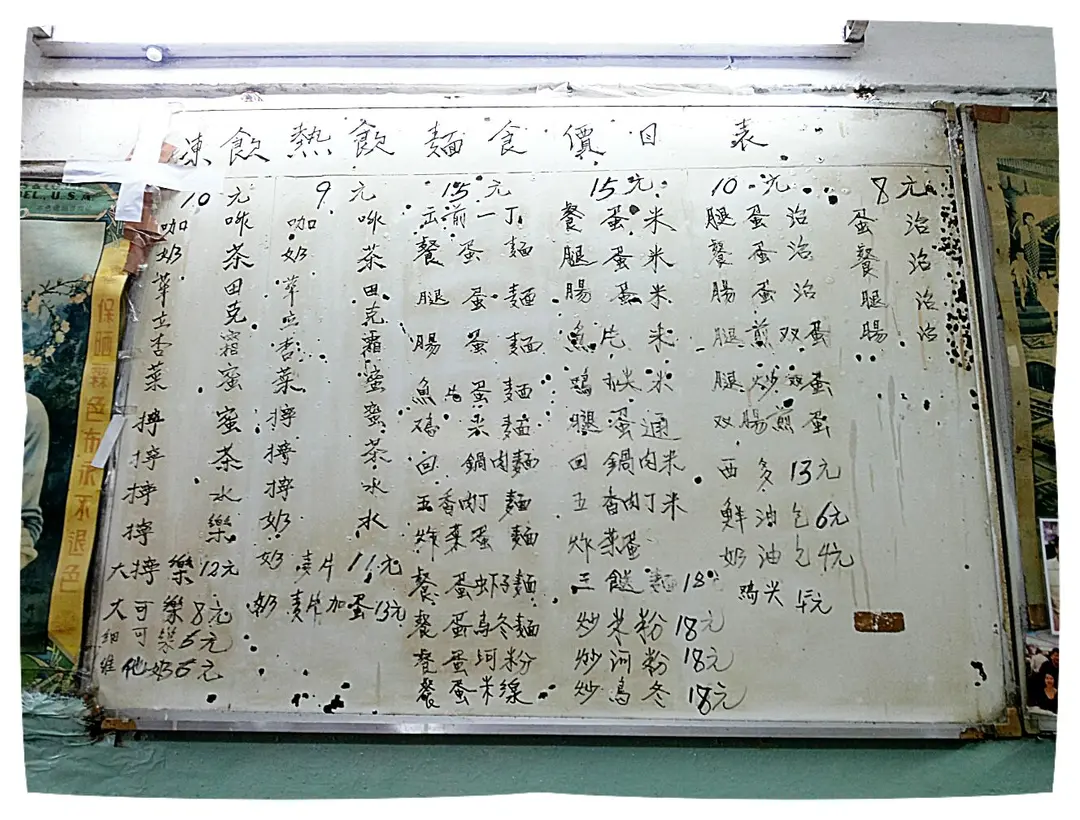 凍飲熱飲麵食價目表
10元
咖啡
奶茶
華田
立克
杏霜
菜蜜
檸蜜
檸茶
檸水
檸樂
大檸樂12元
大可樂8元
細可樂6元
維他奶6元
9元
咖啡
奶茶
華田
立克
杏霜
菜蜜
檸蜜
檸茶
檸水
奶水
奶麦片11元
奶麦片加蛋13元
15元
出前一丁
餐蛋麵
腿蛋麵
腸蛋麵
魚片蛋麵
鸡麵
回鍋肉麵
五香肉丁麵
炸菜蛋麵
餐蛋虾子麵
餐蛋烏冬麵
餐蛋河粉
餐蛋米線
15元
餐蛋米
腿蛋米
腸蛋米
魚片米
鸡米
腿蛋通
回鍋肉米
五香肉丁米
炸菜蛋
三餸麵18
炒米粉18元
炒河粉18元
炒烏冬18元
10元
腿蛋治
餐蛋治
腸蛋治
腿煎双蛋
腿炒双蛋
双腸煎蛋
西多13元
鮮油包6元
奶油包4元
鸡尖4元
8元
蛋治
餐治
腿治
腸治
EL, U.S.A.
保晒霖色布永不退色